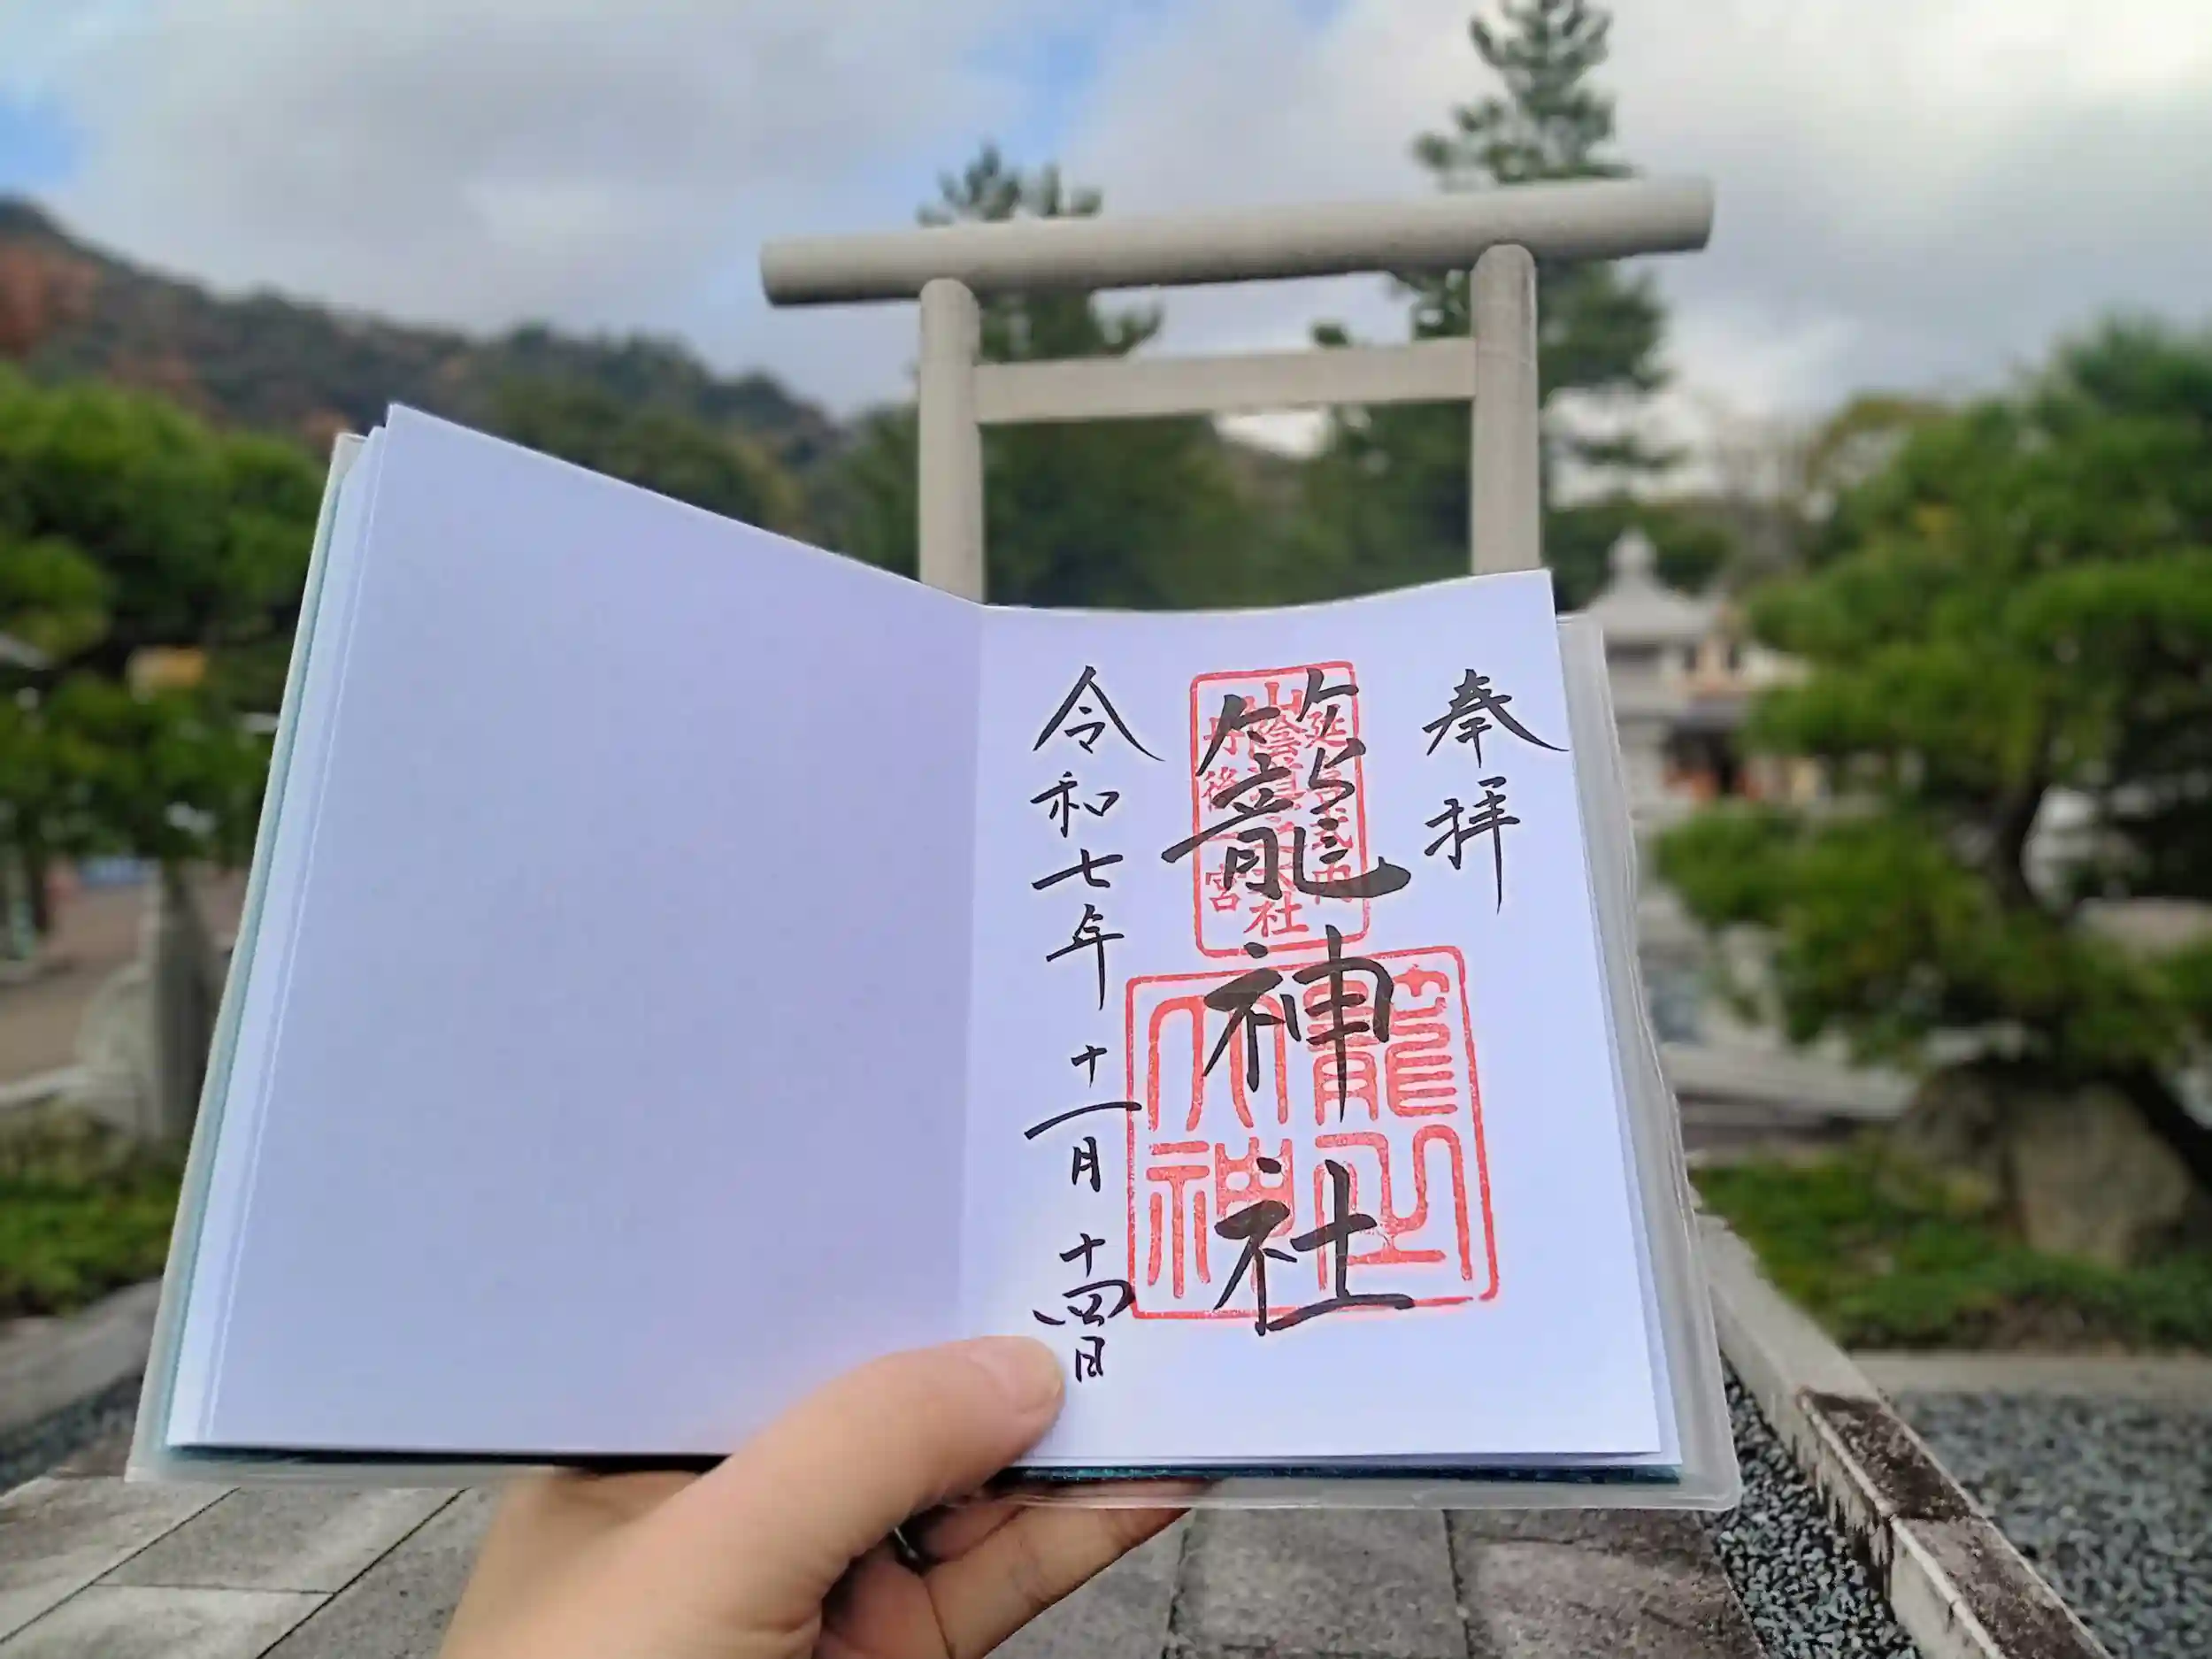 奉拝
延喜式内
山陰道一大社
丹後一宮
籠神社
籠之大神
令和七年十一月十四日